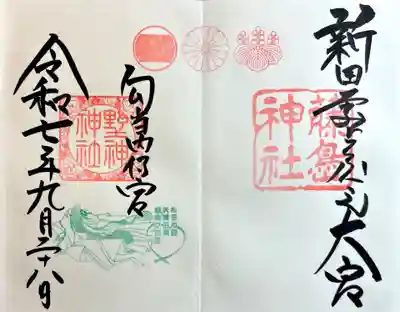 新田
大宮
藤島
神社
勾当内侍宮
野神
神社
令和七年九月二十八日